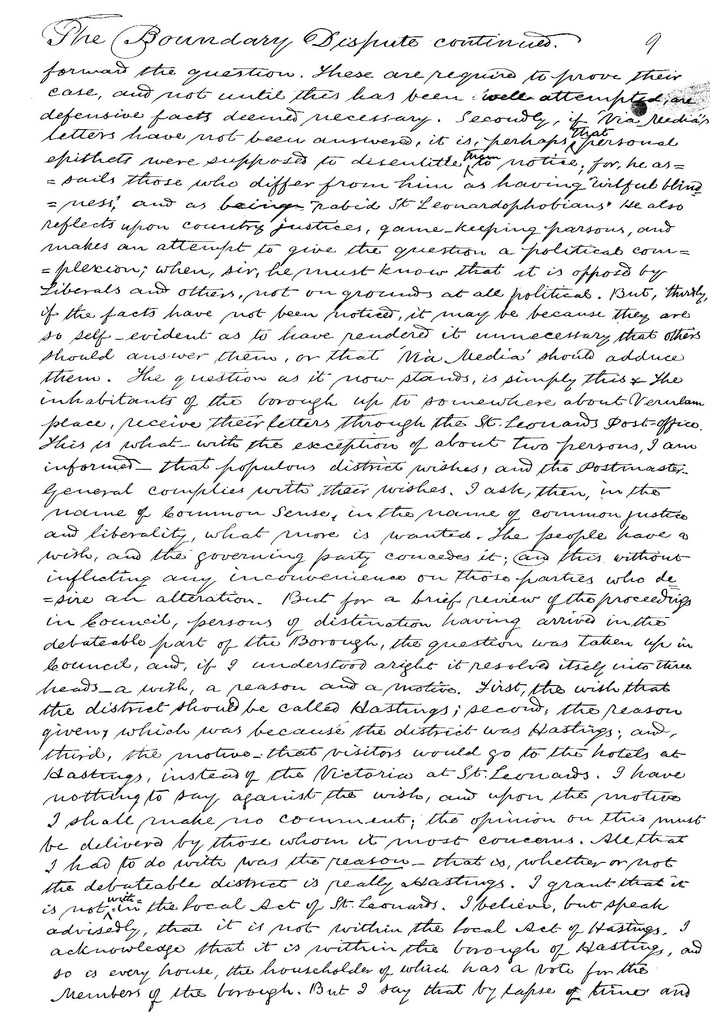 The Boundary Dispute continued. 9
forward the question. These are required to prove their
case, and not until this has been well attempted, are
defensive facts deemed necessary. Secondly, if 'Via Media's
letters have not been answered, it is, perhaps, that personal
epithets were supposed to disentitle them to notice; for, he as=
=sails those who differ from him as having 'wilful blind
=ness,' and as being 'rabid St Leonardophobians' He also
reflects upon country justices, game-keeping parsons, and
makes an attempt to give the question a political com=
=plexion; when, sir, he must know that it is opposed by
Liberals and others, not on grounds at all political. But, thirdly,
if the facts have not been noticed, it may be because they are
so self-evident as to have rendered it unnecessary that others
should answer them, or that 'Via Media' should adduce
them. The question as it now stands, is simply this The
inhabitants of the borough up to somewhere about Verulam
place, receive their letters through the St. Leonards Post-office.
This is what – with the exception of about two persons, I am
informed – that populous district wishes, and the Postmaster-
General complies with their wishes. I ask, then, in the
name of Common Sense, in the name of common justice
and liberality, what more is wanted. The people have a
wish, and the governing party concedes it; and this without
inflicting any inconvenience on those parties who de=
=sire an alteration. But for a brief review of the proceedings
in Council, persons of distination having arrived in the
debateable part of the Borough, the question was taken up in
Council, and, if I understood aright it resolved itself into three
heads – a wish, a reason and a motive. First, the wish that
the district should be called Hastings; second, the reason
given, which was because the district was Hastings; and,
third, the motive – that visitors would go to the hotels at
Hastings, instead of the Victoria at St. Leonards. I have
nothing to say against the wish, and upon the motive
I shall make no comment; the opinion on this must
be deliverd by those whom it most concerns. All that
I had to do with was the reason – that is, whether or not
the debateable district is really Hastings. I grant that it
is not with=in the local Act of St. Leonards. I believe, but speak
advisedly, that it is not within the local Act of Hastings. I
acknowledge that it is within the borough of Hastings, and
so is every house, the householder of which has a vote for the
Members of the borough. But I say that by lapse of time and